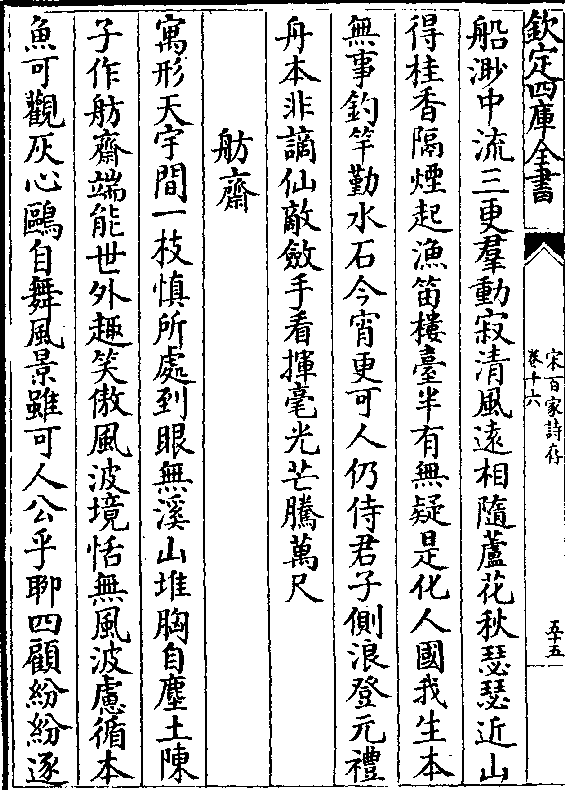 欽定四庫全書
宋百家詩存
卷十六
五十五
船渺中流三更羣動寂清風遠相隨蘆花秋瑟瑟近山
得桂香隔煙起漁笛樓臺半有無疑是化人國我生本
無事釣竿勤水石今宵更可人仍侍君子側浪登元禮
舟本非謫仙敵斂手看揮毫光芒騰萬尺
舫齋
寓形天宇間一枝慎所處到眼無溪山堆胸自塵土陳
子作舫齋端能世外趣笑傲風波境恬無風波慮循本
魚可觀灰心鷗自舞風景雖可人公乎聊四顧紛紛逐